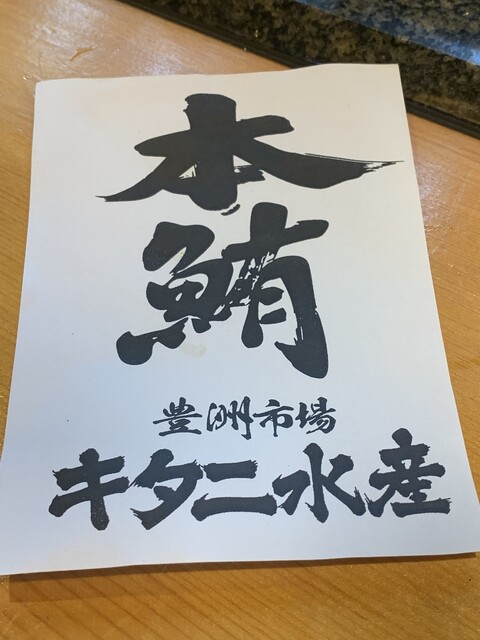 本
鮪
豊洲市場
キタニ水産